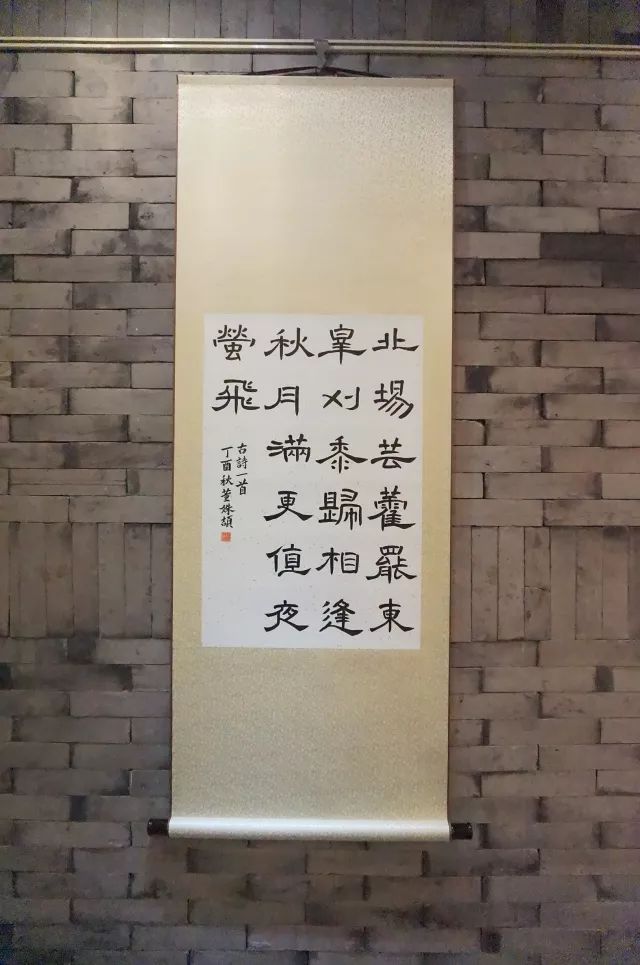 北場芸藿罷東
皋刈黍歸相逢
秋月滿更値夜
螢飛
古詩一首
丁酉秋董姝頡